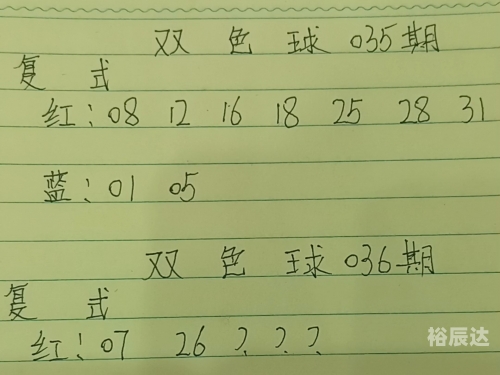 双 色 球 035期
复 式
红:08 12 16 18 25 28 31
蓝:01 05
双 色 球 036期
复 式
红:07 26 ? ? ?
裕辰达